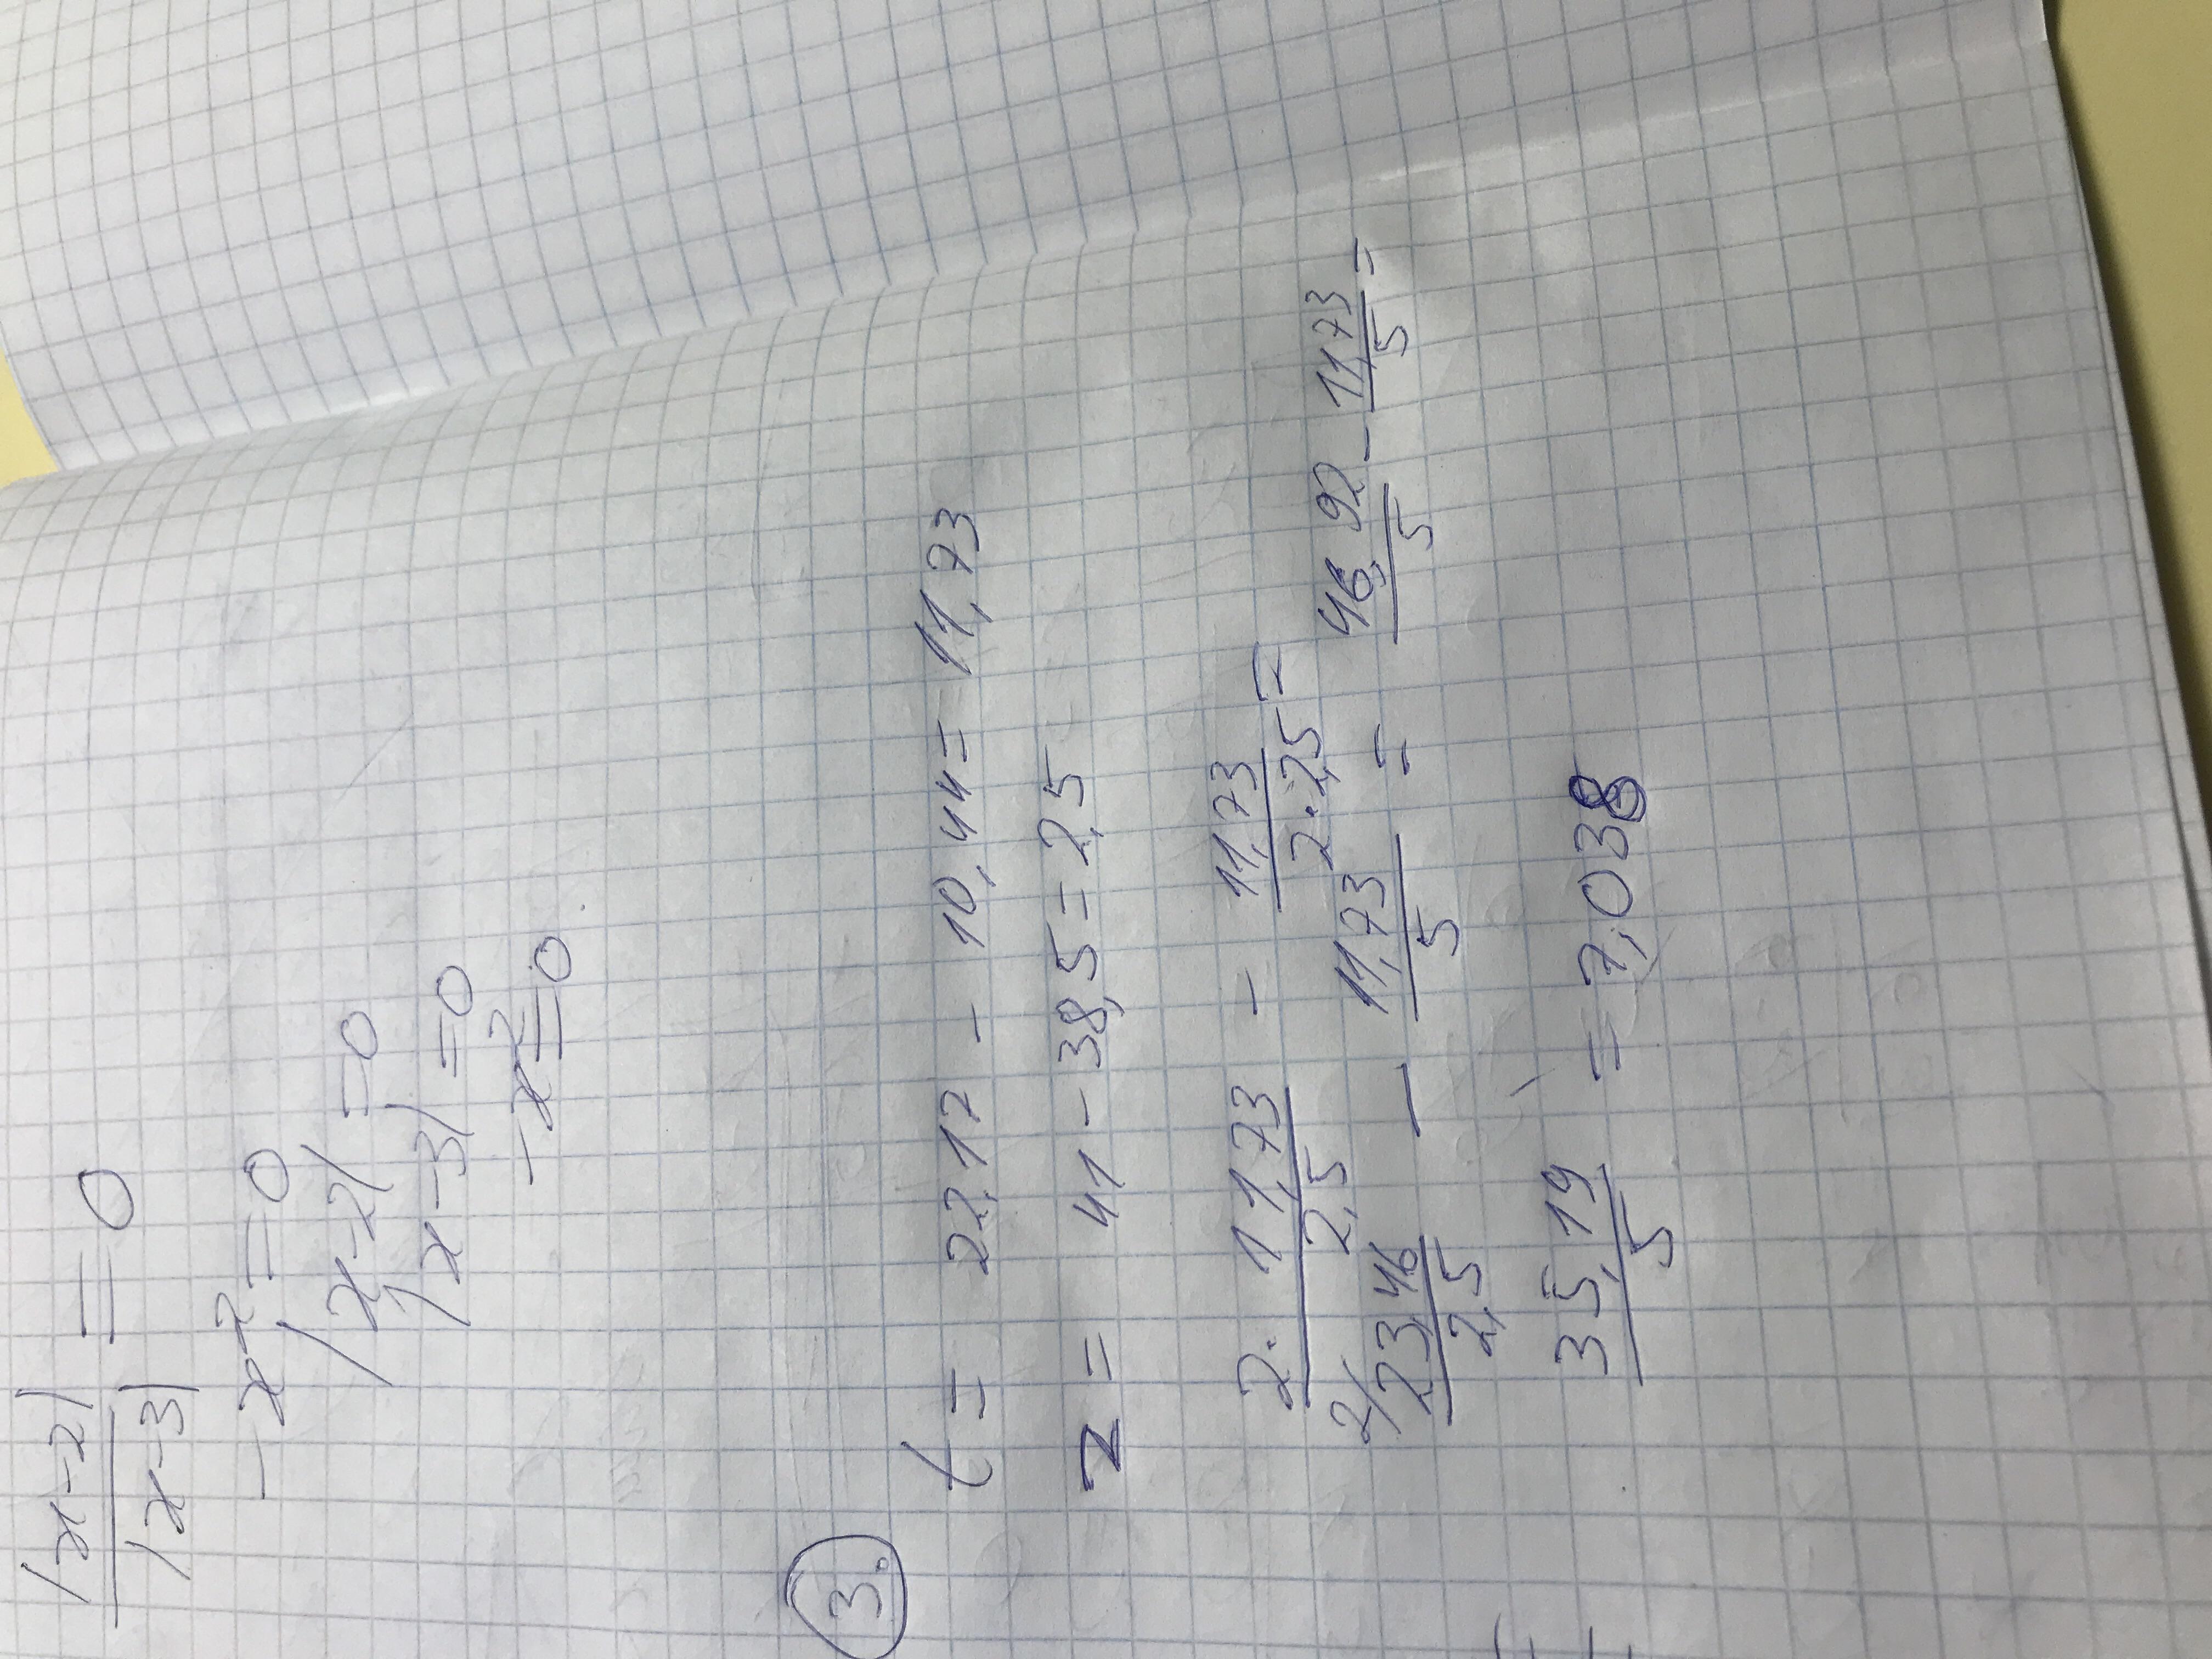 |x-2|
|x-3| = 0
-x² = 0
|x-2| = 0
|x-3| = 0
-x² = 0
3.
t = 22,17 - 10,44 = 11,73
z = 41 - 38,5 = 2,5
2·11,73/2,5 - 11,73/2·2,5 =
2/ 23,46/2,5 - 11,73/5 = 46,92/5 - 11,73/5 =
35,19/5 = 7,038